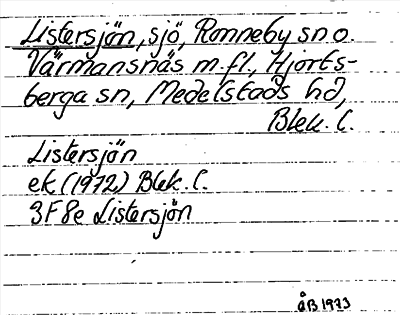 Listersjön, sjö, Ronneby sn o.
Värmansnäs m.fl., Hjorts-
berga sn, Medelstads hd,
Blek. l.
Listersjön
ek (1972) Blek. l.
3F8e Listersjön
ÅB 1973